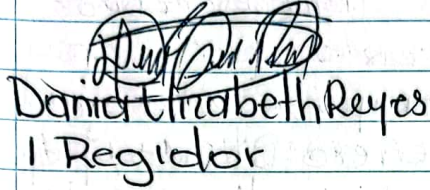 Elizabeth Reyes
1 Regidor